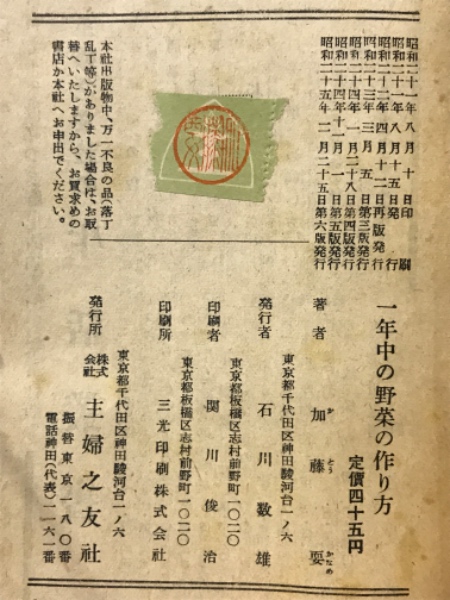 昭和二十一年八月十日印刷
昭和二十一年八月十五日発行
昭和二十二年四月十二日再版発行
昭和二十三年三月五日第三版発行
昭和二十四年一月二十八日第四版発行
昭和二十四年十一月一日第五版発行
昭和二十五年二月二十五日第六版発行
本社出版物中、万一不良の品(落丁
乱丁等)がありました場合は、お取
替へいたしますから、お買求めの
書店か本社へお申出でください。
一年中の野菜の作り方
定價四十五円
著者 加藤要
かとうかなめ
東京都千代田区神田駿河台一ノ六
発行者 石川数雄
東京都板橋区志村前野町一〇二〇
印刷者 関川俊治
東京都板橋区志村前野町一〇二〇
印刷所 三光印刷株式会社
東京都千代田区神田駿河台一ノ六
発行所 株式会社 主婦之友社
振替東京一八〇番
電話神田(代表)二一六一番